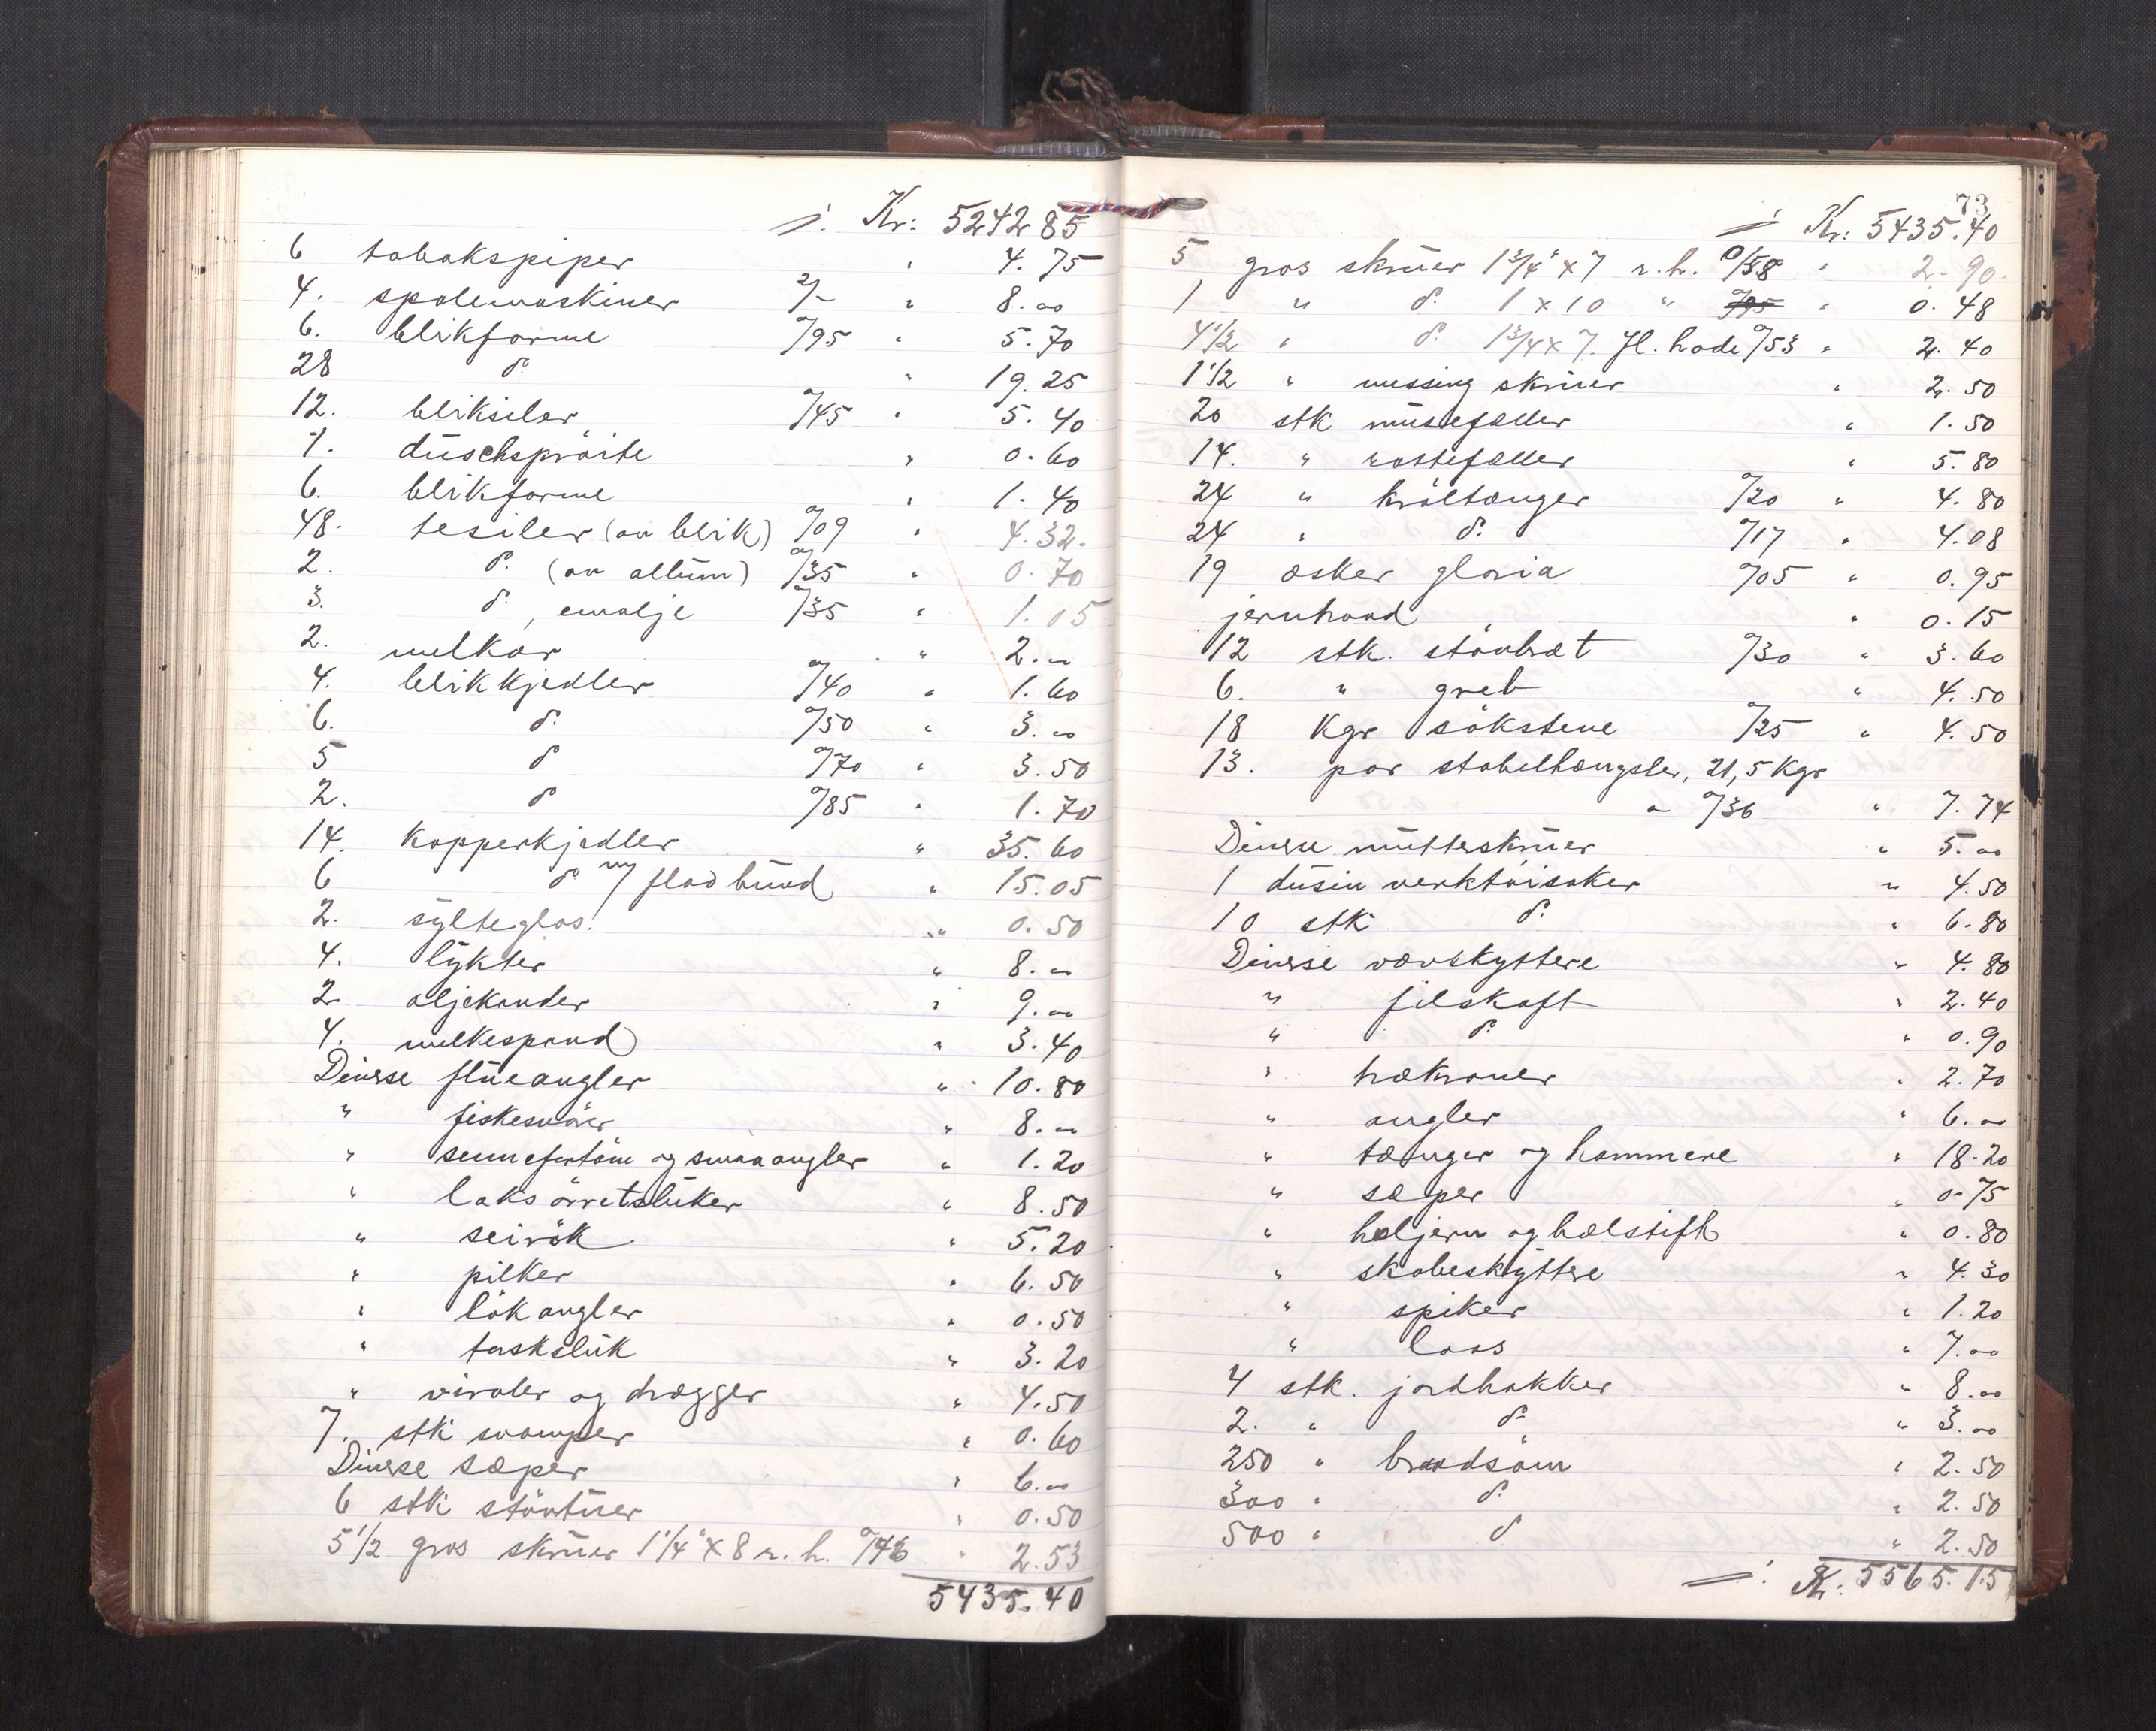 ÷ Kr: 5242 85
6 tobakspiper " 4. 75
4. spolemaskiner 2/- " 8.00
6. blikforme 0/95 " 5.70
28 do. " 19.25
12. bliksiler 0/45 " 5.40
1. düschspröite " 0.60
6. blikforme " 1.40
48. tesiler (av blik) 0/09 " 4.32.
2. do. (av allüm) 0/35 " 0.70
3. do., emalje 0/35 " 1.05
2. melkar " 2.00
4. blikkjedler 0/40 " 1.60
6. do. 0/50 " 3.00
5 do 0/70 " 3.50
2. do 0/85 " 1.70
14. kopperkjedler " 35.60
6 do m/ flad bünd " 15.05
2. sylteglas. " 0.50
4. lykter " 8.00
2 oljekander " 9.00
4. melkespand " 3.40
Diverse flüeangler " 10.80
" fiskesnörer " 8.00
" sennefortöm og smaaangler " 1.20
" laks örretslüker " 8.50
" seirök " 5.20
" pilker " 6.50
" lökangler " 0.50
" torsklük " 3.20
" virvler og drægger " 4.50
7. stk svamper " 0.60
Diverse sæper " 6.00
6 stk stöv " 0.50
5 1/2 gros skrüer 1 1/4" x 8 r. h. 0/46 " 2.53
5435.40
73
÷ Kr: 5435.40
5 gros skrüer 1 3/4" x 7 r. h. 0/58 " 2.90.
1 " do. 1 x 10 " 0/95 " 0.48
4 1/2 " do. 1 3/4 x 7. fl. hode 0/53 " 2.40
1 1/2 " messing skrüer " 2.50
20 stk müsefæller " 1.50
14. " rottefæller " 5.80
24 " kröltænger 0/20 " 4.80
24 " do. 0/17 " 4.08
19 æsker gloria 0/05 " 0.95
jernbaand " 0.15
12 stk. stövbræt 0/30 " 3.60
6. " greb " 4.50
18 Kgr sökstene 0/25 " 4.50
13. par stabelhængsler, 21,5 Kgr
a 0/36 " 7.74
Diverse mütterskrüer " 5.00
1 düsin verktöisaker " 4.50
10 stk do. " 6.80
Diverse vævskyttere " 4.80
" filskaft " 2.40
" do. " 0.90
" trækraner " 2.70
" angler " 6.00
" tænger og hammere " 18.20
" sæper " 0.75
" hæljern og hælstift " 0.80
" skobeskyttere " 4.30
" spiker " 1.20
" laas " 7.00
4 stk. jordhakker " 8.00
2. " do. " 3.00
250 " braadsöm " 2.50
300 " do. " 2.50
500 " do " 2.50
÷ Kr. 5565.15